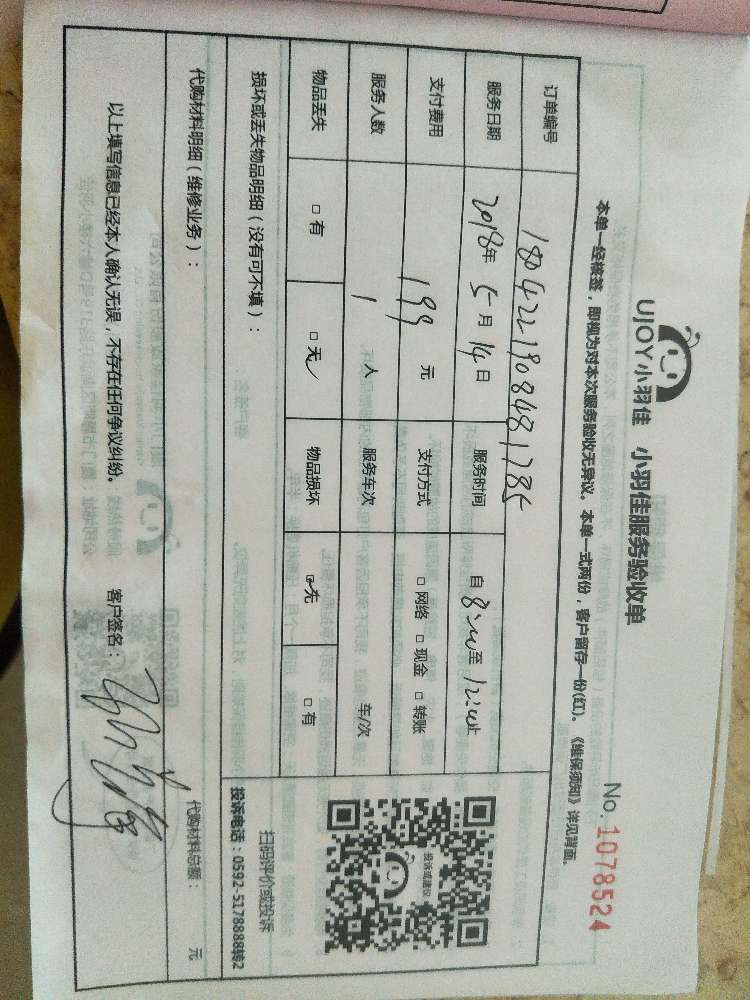 UJOY小羽佳 小羽佳服务验收单
No.1078524
本单一经核签，即视为对本次服务验收无异议。本单一式两份，客户留存一份(红)。《维保须知》详见背面。
订单编号 1804221908481785
服务日期 2018年 5月 14日 服务时间 自 8:00 至 12:00止
支付费用 199 元 支付方式 □网络 □现金 □转账
服务人数 1 人 服务车次 车/次
物品丢失 □有 □无✓ 物品损坏 □无 □有
投诉或建议
扫码评价或投诉
投诉电话：0592-5178888转2
损坏或丢失物品明细（没有可不填）：
代购材料明细（维修业务）： 代购材料总额： 元
以上填写信息已经本人确认无误，不存在任何争议纠纷。 客户签名：